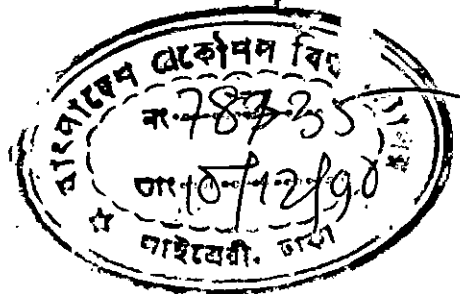 বাংলাদেশ প্রকৌশল বিশ্ব
নং 78735
তাং 10/12/90
লাইব্রেরী. ঢাকা